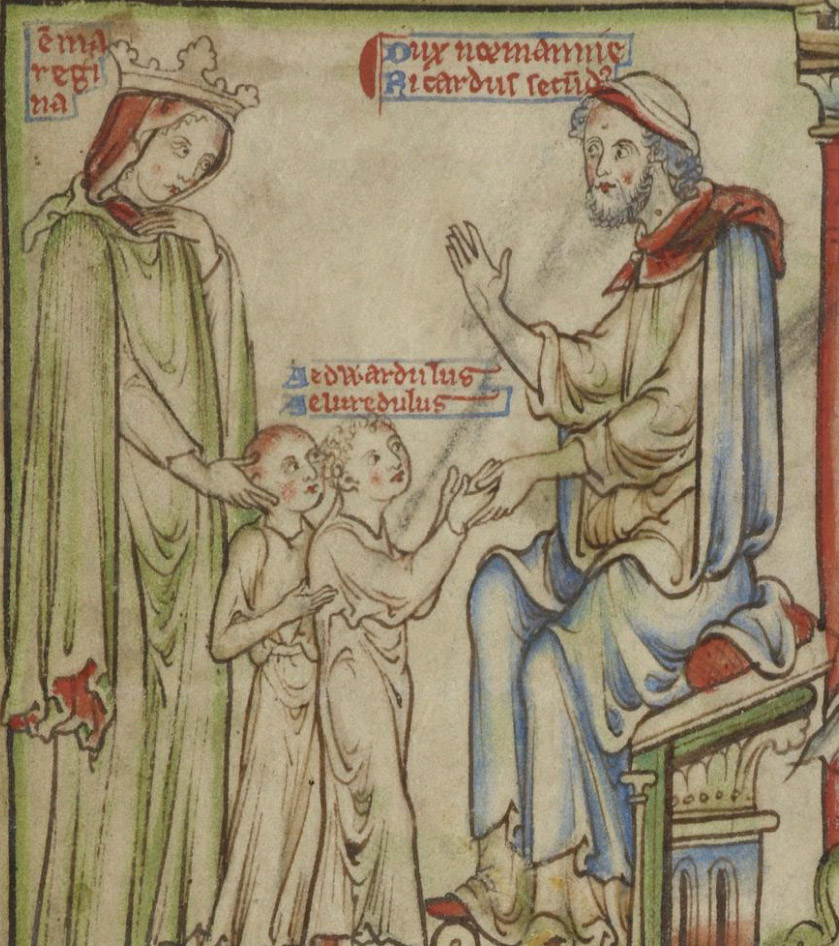 ēma
regi
na
Dux normannie
Ricardus secūdꝰ
Aedwardulus
Aeluredulus